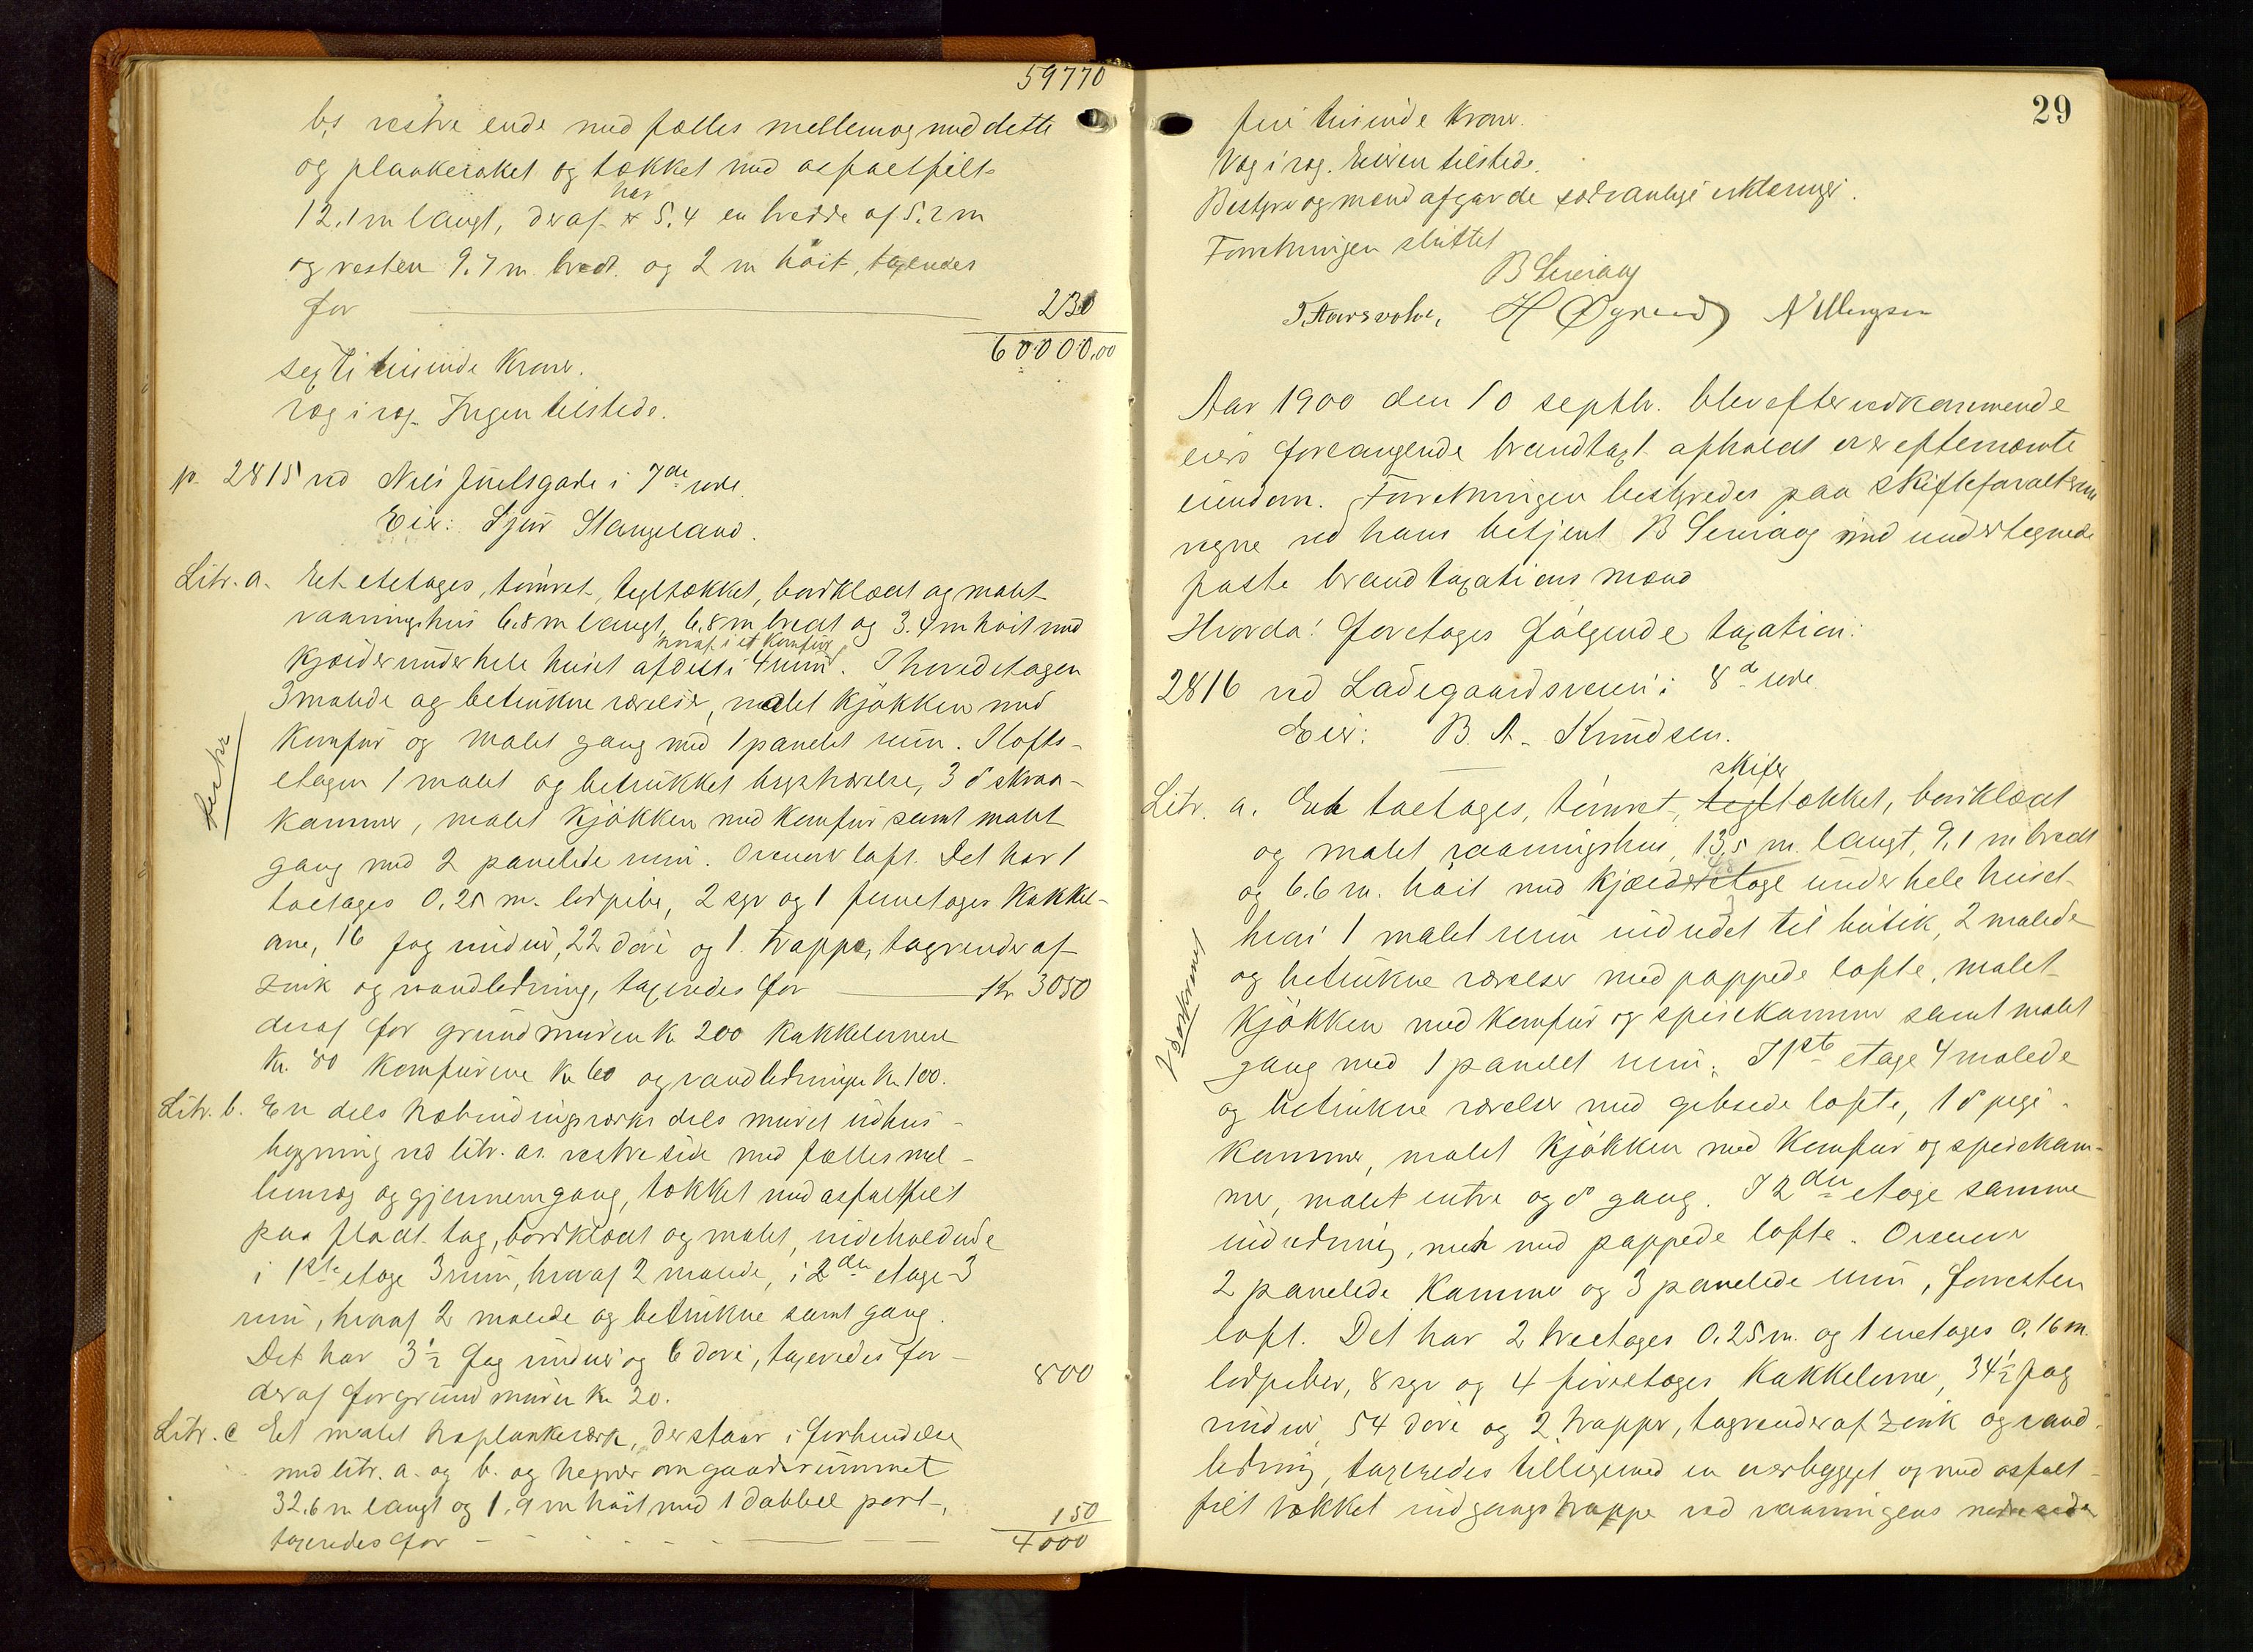 59770
b,s vestre ende med fælles mellemvæg med dette
og plankeraket og tækket med asfaltfilt
12.1 m langt, deraf har 5.4 en bredde af 5.2 m
og resten 9.7 m. bredt. og 2 m höit, taxeredes
for 230
60000,00
sexti tusinde Kroner.
Væg i væg. Ingen tilstede.
p. 2815 ved Niels Juelsgade i 7de rode.
Eier: Sjur Stangeland.
Litr. a. Et etetages, tömret, tegltækket, bordklædt og malet
vaaningshus 6.8 m langt, 6.8 m bredt og 3.4 m höit med
hvoraf i et Komfür
Kjælder under hele huset afdelt i 4 rum. I hovedetagen
3 malede og betrukne værelser, malet Kjökken med
Komfur og malet gang med 1 panelet rum. I lofts-
etagen 1 malet og betrukket kvistværelse, 3 do skraa-
kammer, malet Kjökken med Komfur samt malet
gang med 2 panelede rum. Ovenover loft. Det har 1
toetages 0.25 m. lodpibe, 2 sgr og 1 fireetages Kakkel-
ovne, 16 fag vinduer, 22 döre og 1 trappe, tagrender af
zink og vandledning, taxeredes for Kr 3050
deraf for grundmuren Kr 200 Kakkelovnene
Kr. 80 Komfurene Kr 60 og vandledningen Kr 100.
Litr. b. En dels træbindingsværks dels muret udhus-
bygning ved litr. a s. vestre side med fælles mel-
lemvæg og gjennemgang, tækket med asfaltfilt
paa fladt tag, bordklædt og malet, indeholdende
i 1ste etage 3 rum, hvoraf 2 malede, i 2den etage 3
rum, hvoraf 2 malede og betrukne samt gang.
Det har 3½ fag vinduer og 6 döre, taxeredes for - 800
deraf for grundmuren Kr 20.
Litr. c Et malet træplankeværk, der staar i forbindelse
med litr. a. og b. og hegner om gaardsrummet
32.6 m langt og 1.9 m höit med 1 dobbel port,
taxeredes for - 150
4000
29
fire tusinde Kroner.
Væg i væg. Eieren tilstede.
Bestyrer og mænd afgav de sædvanlige erklæringer.
Forretningen sluttet
B Sevaag
T. Aarsvold, H Øgreid N Ellingsen
Aar 1900 den 10 septbr. blev efter vedkommende
eiers forlangende brandtaxt afholdt over efternævnte
eiendom. Forretningen bestyredes paa Skifteforvalterens
vegne ved hans betjent B Sevaag med undertegnede
faste brandtaxationsmænd
Hvorda! foretoges fölgende taxation:
2816 ved Ladegaardsveien i 8de rode
Eier: B. A. Knudsen.
skifer
Litr. a. Et toetages, tömret, tegltækket, bordklædt
og malet vaaningshus, 13,5 m. langt, 9,1 m bredt
og 6.6 m. höit med Kjælderetage under hele huset
hvori 1 malet rum indredet til butik, 2 malede
og betrukne værelser med pappede lofte, malet
Kjökken med Komfur og spisekammer samt malet
gang med 1 panelet rum. I 1ste etage 4 malede
og betrukne værelser med gibsede lofte, 1 do pige-
kammer, malet Kjökken med Komfur og spisekam-
mer, malet entre og do gang. I 2den etage samme
indredning, men med pappede lofte. Ovenover
2 panelede Kammer og 3 panelede rum, forresten
loft. Det har 2 treetages 0.25 m. og 1 enetages 0,16 m.
lodpiber, 8 sgr og 4 fireetages Kakkelovne, 34½ fag
vinduer, 54 döre og 2 trapper, tagrender af zink og vand-
ledning, taxeredes tilligemed en overbygget og med asfalt-
filt tækket indgangstrappe ved vaaningens nordre side